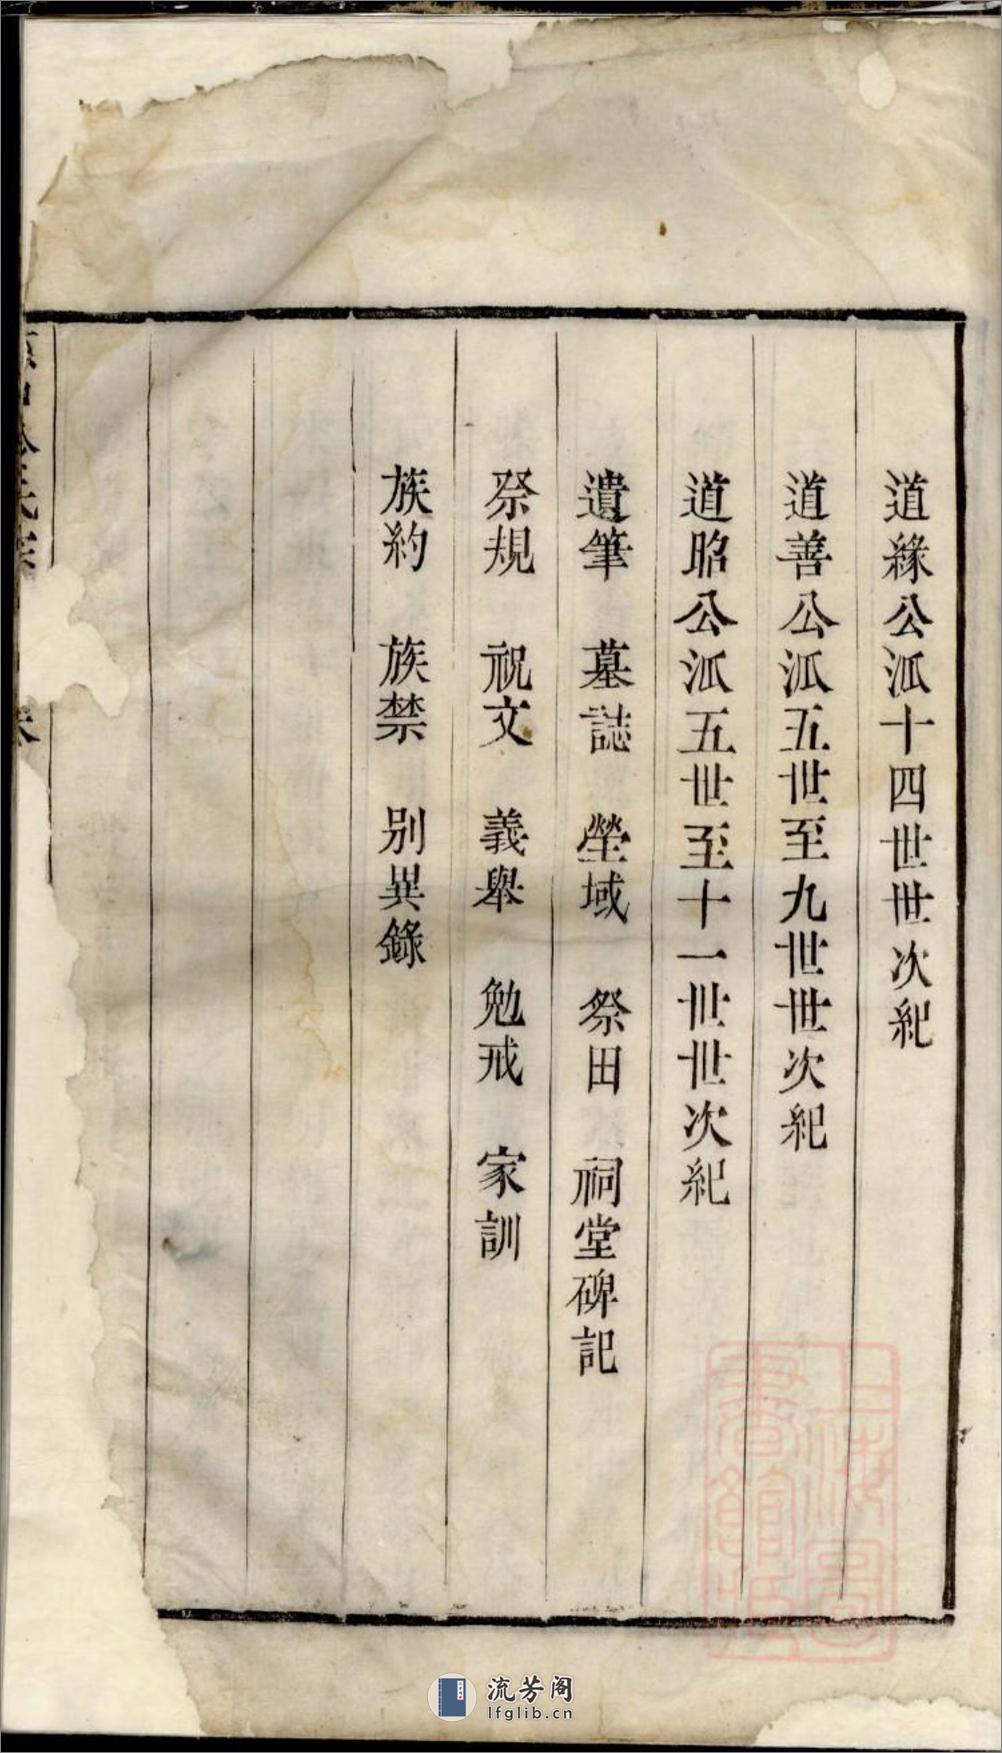 道緣公派十四世世次紀
道善公派五世至九世世次紀
道昭公派五世至十一世世次紀
遺筆 墓誌 塋域 祭田 祠堂碑記
祭規 祝文 義舉 勉戒 家訓
族約 族禁 别異錄
上海圖書館藏
流芳阁
lfglib.cn